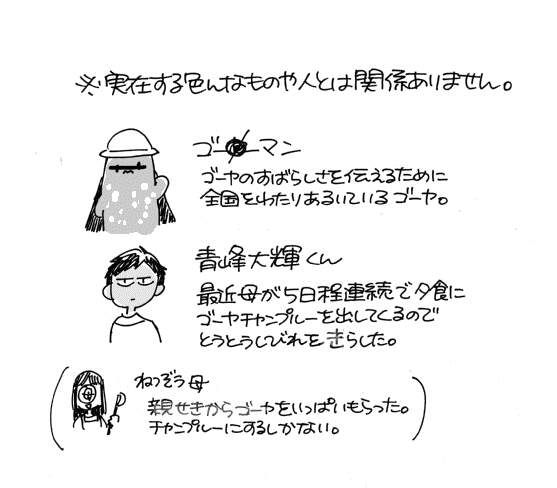 ※実在する色んなものや人とは関係ありません。
ゴーーマン
ゴーヤのすばらしさを伝えるために
全国をわたりあるいているゴーヤ。
青峰大輝くん
最近母が5日程連続で夕食に
ゴーヤチャンプルーを出してくるので
とうとうしびれをきらした。
ねつぞう母
親せきからゴーヤをいっぱいもらった。
チャンプルーにするしかない。